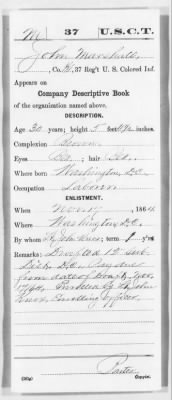 M | 37 | U.S.C.T.
John Marshall
, Co. , 37 Reg't U. S. Colored Inf.
Appears on
Company Descriptive Book
of the organization named above.
DESCRIPTION.
Age 30 years; height 5 feet inches.
Complexion Brown
Eyes Blk.; hair Blk.
Where born Washington, D.C.
Occupation Laborer
ENLISTMENT.
When Nov. , 1864.
Where Washington, D.C.
By whom Knox; term 1 y'rs.
Remarks: Drafted 1st Sub
Dist. D.C. Pay due
from date of
17/64. Enrolled by John
Knox, Enrolling officer.
Copyist.